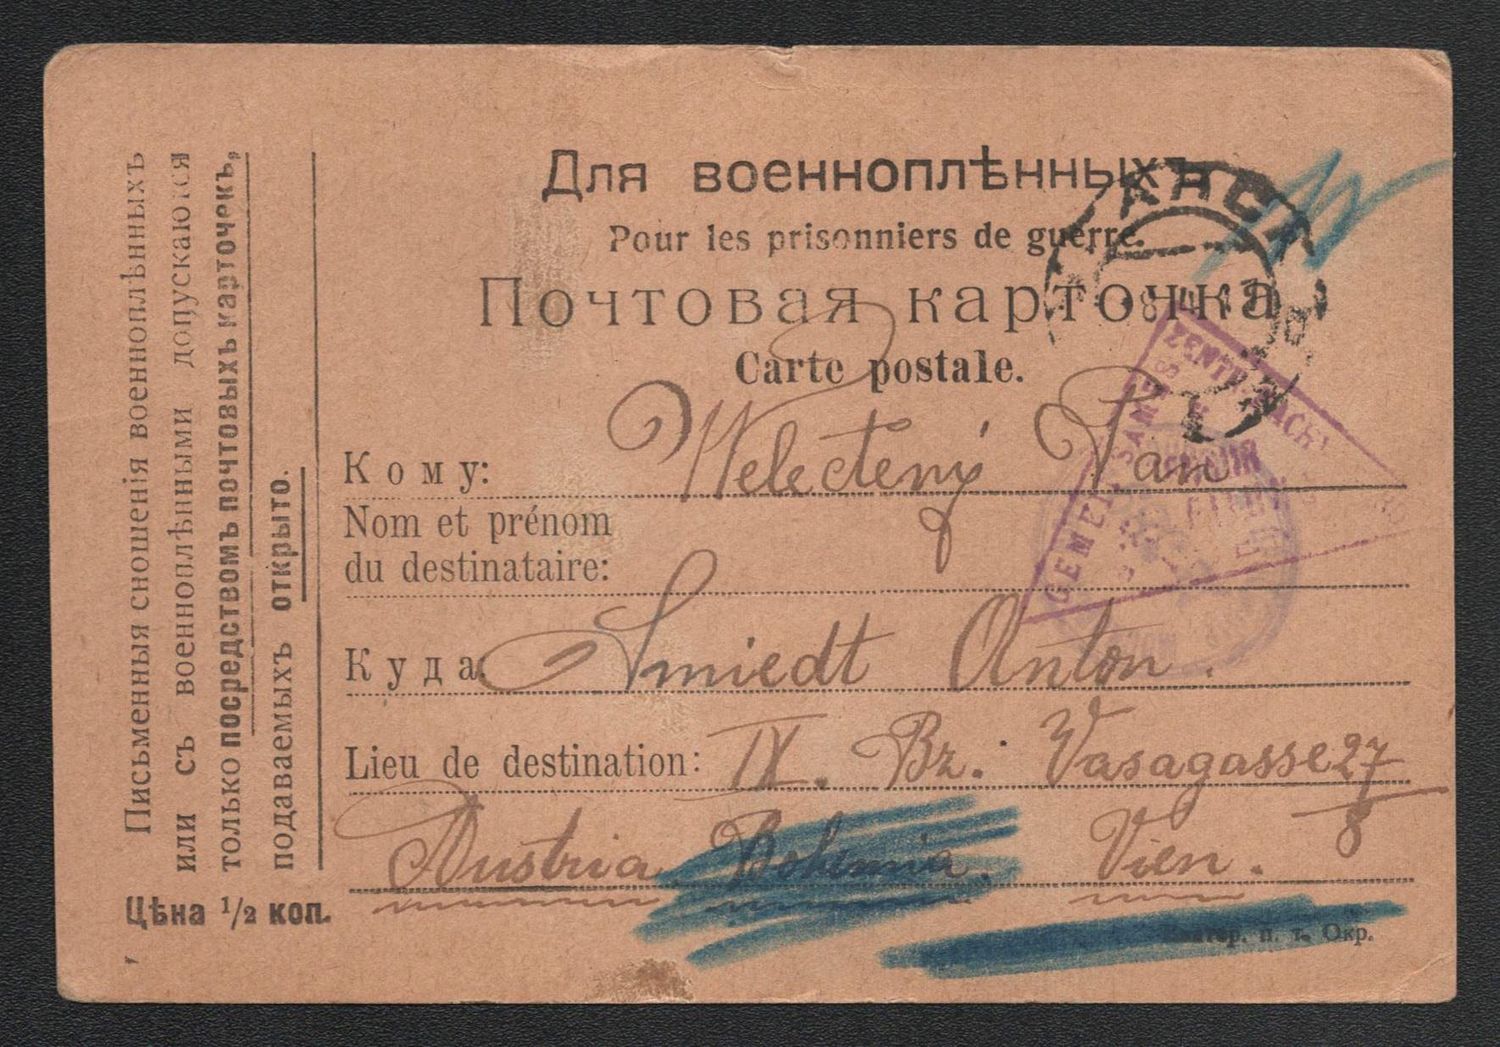 Для военноплѣнныхъ
Pour les prisonniers de guerre.
Почтовая карточка
Carte postale.
Кому: Welectený Pan
Nom et prénom
du destinataire:
Куда: Smiedt Anton.
Lieu de destination: IX. Bz. Vasagasse 27
8
Austria Bohemia. Vien.
п. т. Окр.
Письменныя сношенія военноплѣнныхъ
или съ военноплѣнными допускаются
только посредствомъ почтовыхъ карточекъ,
подаваемыхъ открыто.
Цѣна 1/2 коп.
КАНСК
ZENTR.
GEMEINSAMES